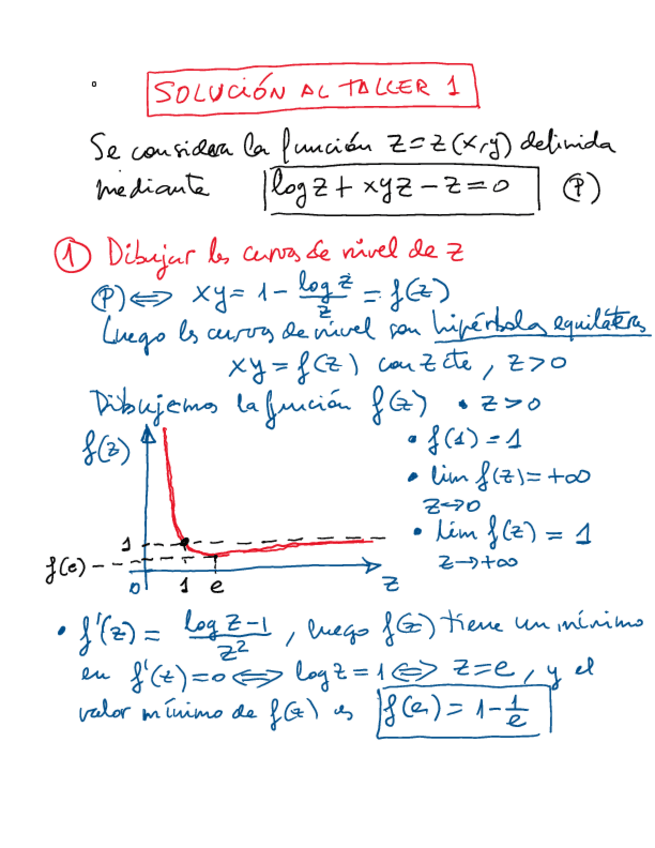 SOLUCIÓN AL TALLER 1
Se considera la función z=z(x,y) definida
mediante log z + xyz - z = 0 (P)
① Dibujar las curvas de nivel de z
(P) ⟺ xy = 1 - log z / z = f(z)
Luego las curvas de nivel son hipérbolas equiláteras
xy = f(z) con z cte, z>0
Dibujemos la función f(z) • z>0
f(z)
• f(1) = 1
• lim f(z) = +∞
z→0
• lim f(z) = 1
z→+∞
1
f(e)
0 1 e z
• f'(z) = log z - 1 / z², luego f(z) tiene un mínimo
en f'(z)=0 ⟺ log z = 1 ⟺ z=e, y el
valor mínimo de f(z) es f(e) = 1 - 1/e